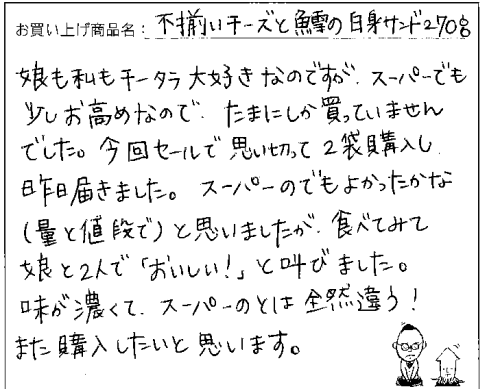 お買い上げ商品名： 不揃いチーズと鱈の白身サンド270g
娘も私もチータラ大好きなのですが、スーパーでも
少しお高めなので、たまにしか買っていません
でした。今回セールで思い切って2袋購入し
昨日届きました。スーパーのでもよかったかな
(量と値段で)と思いましたが、食べてみて
娘と2人で「おいしい！」と叫びました。
味が濃くて、スーパーのとは全然違う！
また購入したいと思います。